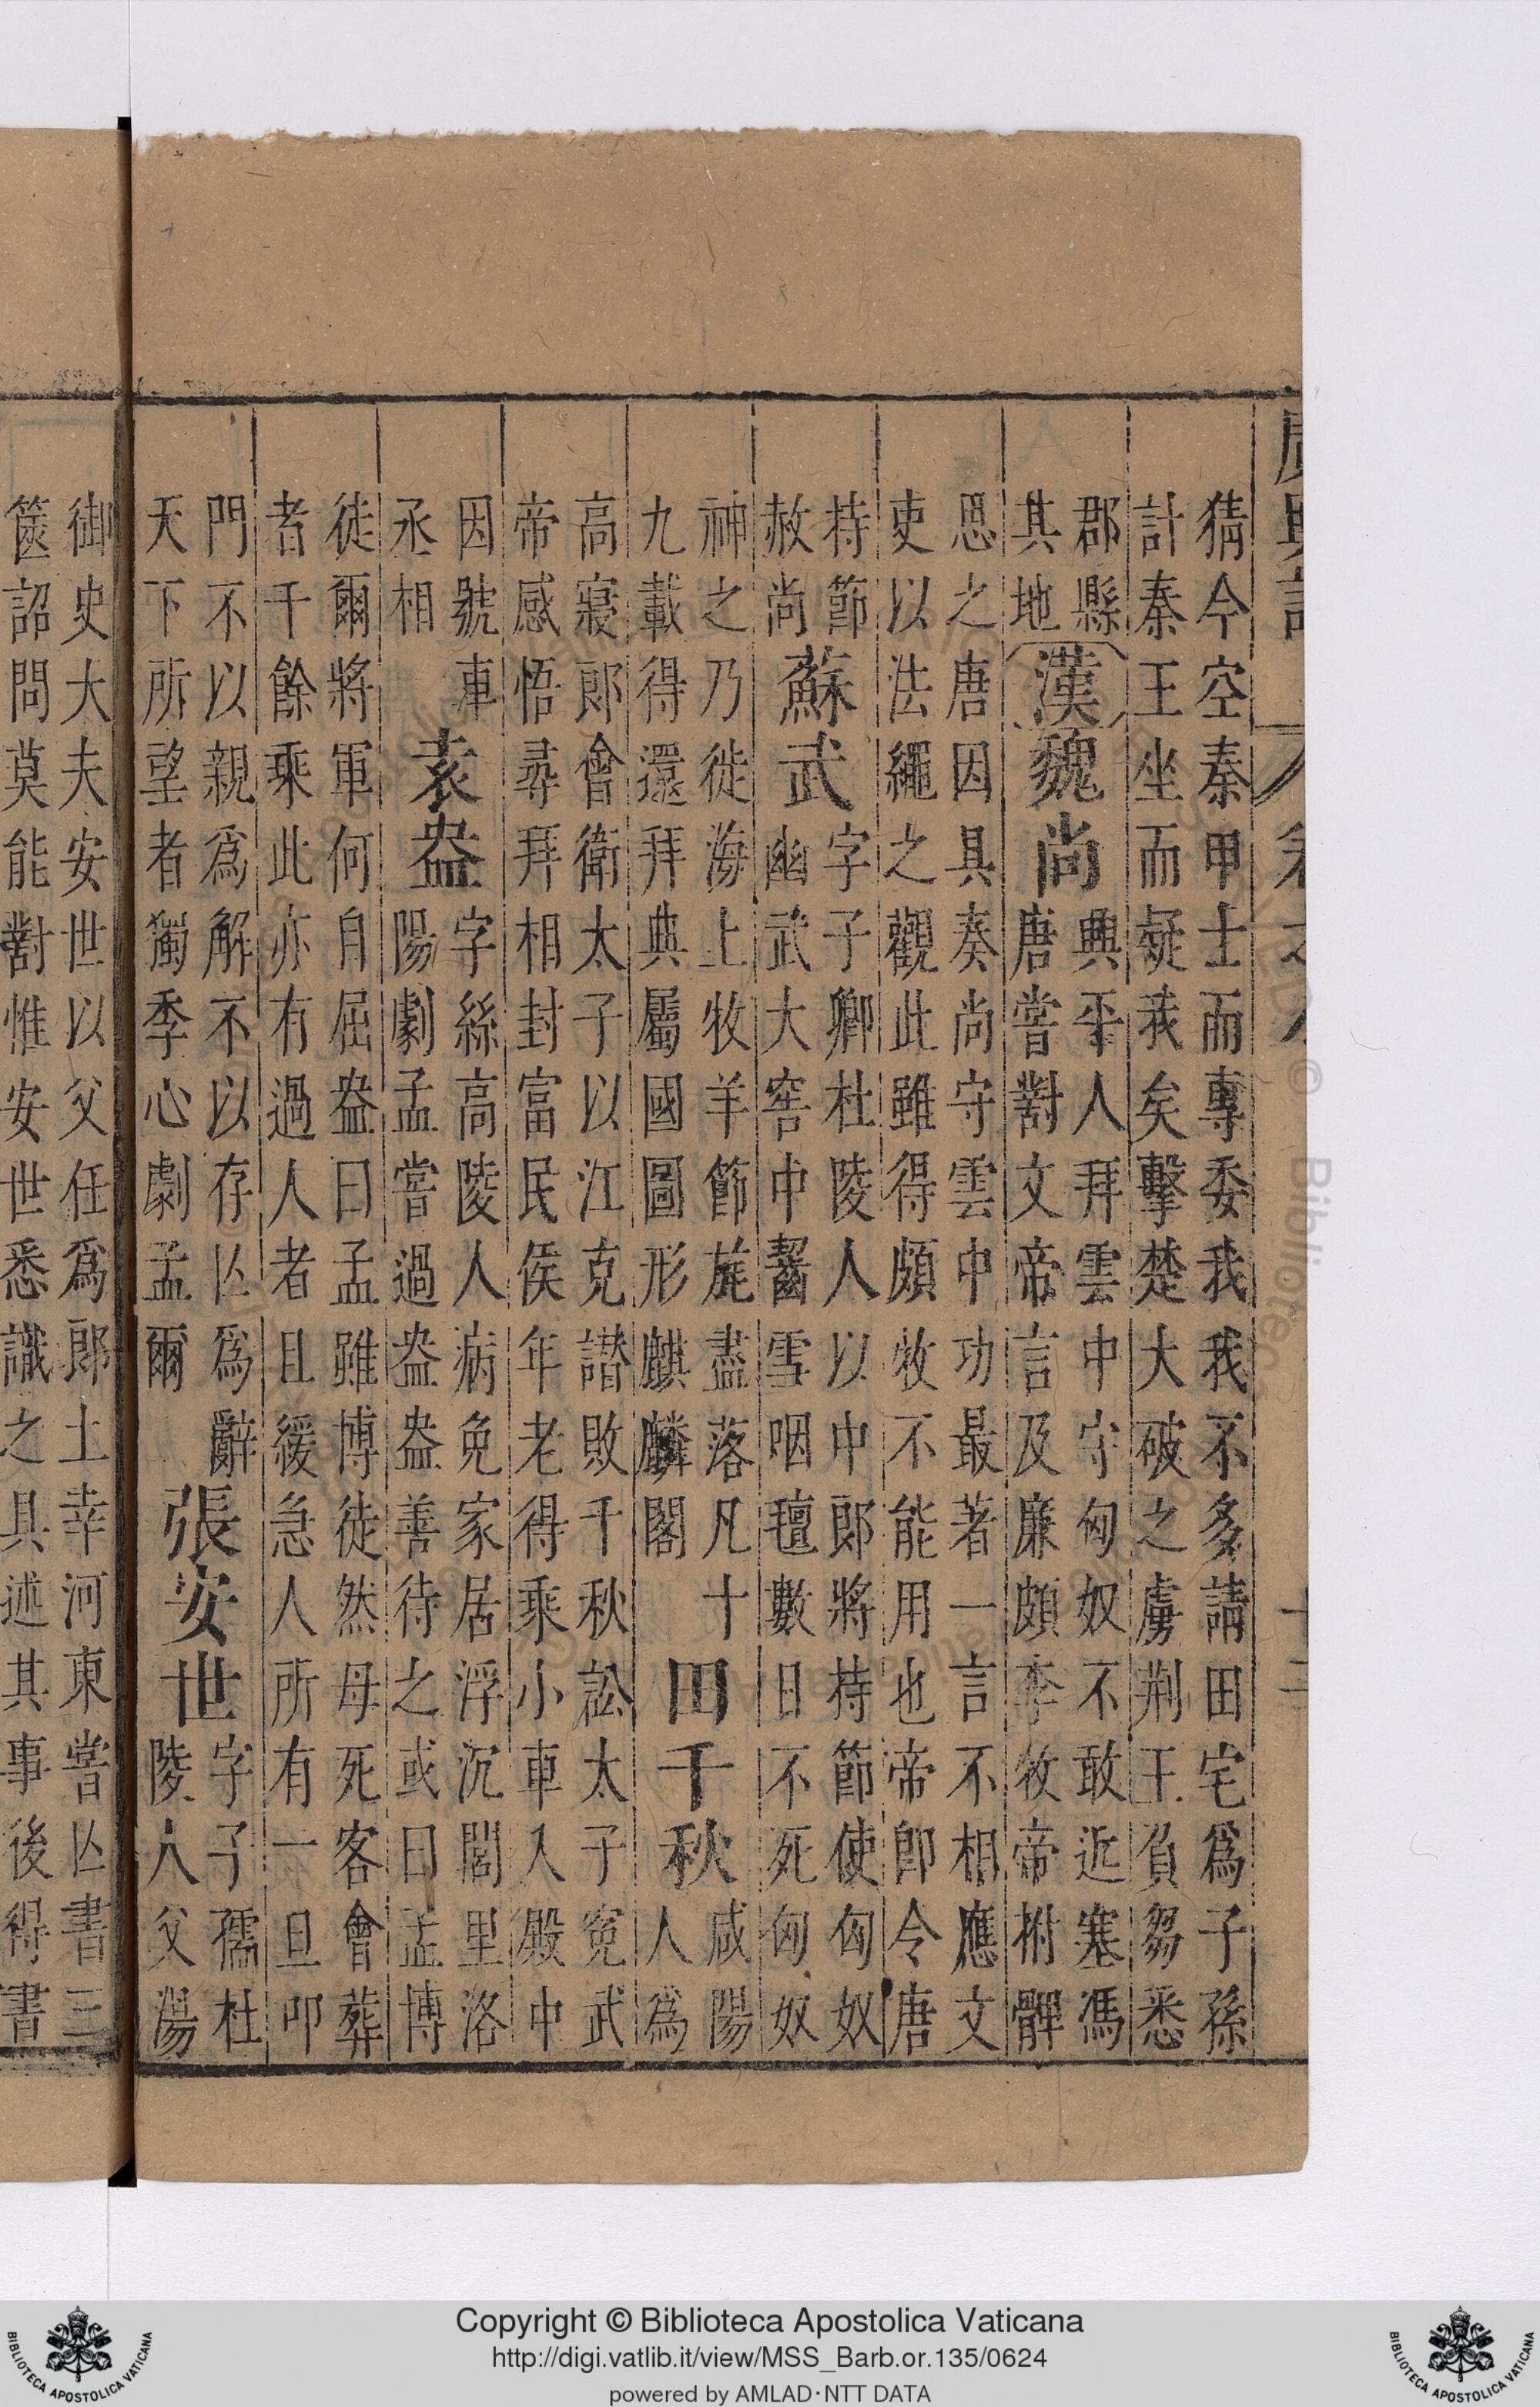 猜今空秦甲士而專委我我不多請田宅為子孫
計秦王坐而疑我矣擊楚大破之虜荆王負芻悉
郡縣
其地
漢
魏尚
興平人拜雲中守匈奴不敢近塞馮
唐嘗對文帝言及廉頗李牧帝拊髀
思之唐因具奏尚守雲中功最著一言不相應文
吏以法繩之觀此雖得頗牧不能用也帝卽令唐
持節
赦尚
蘇武
字子卿杜陵人以中郎將持節使匈奴
幽武大窖中齧雪咽氊數日不死匈奴
神之乃徙海上牧羊節旄盡落凡十
九載得還拜典屬國圖形麒麟閣
田千秋
咸陽
人為
高寢郎會衛太子以江充譖敗千秋訟太子寃武
帝感悟尋拜相封富民侯年老得乘小車入殿中
因號車
丞相
袁盎
字絲高陵人病免家居浮沉閭里洛
陽劇孟嘗過盎盎善待之或曰孟博
徒爾將軍何自屈盎曰孟雖博徒然母死客會葬
者千餘乘此亦有過人者且緩急人所有一旦叩
門不以親爲解不以存亾爲辭
天下所望者獨季心劇孟爾
張安世
字子孺杜
陵人父湯
御史大夫安世以父任爲郎上幸河東嘗亾書三
篋詔問莫能對惟安世悉識之具述其事後得書
Copyright © Biblioteca Apostolica Vaticana
http://digi.vatlib.it/view/MSS_Barb.or.135/0624
powered by AMLAD·NTT DATA
BIBLIOTECA APOSTOLICA VATICANA
BIBLIOTECA APOSTOLICA VATICANA